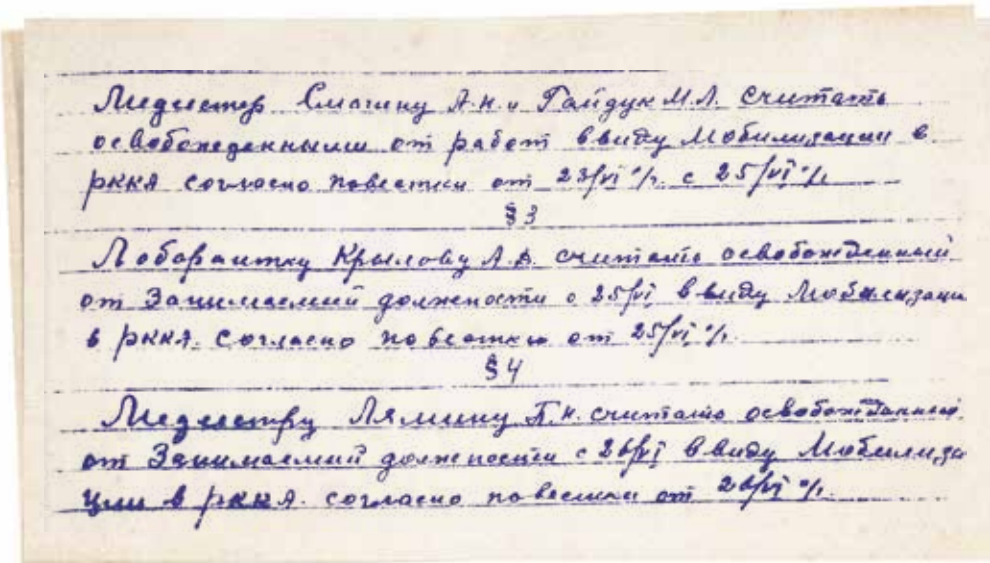 Медсестер Смагину А.Н. и Гайдук М.Л. считать
освобожденными от работ ввиду Мобилизации в
РККА согласно повестки от 23/VI %. с 25/VI %.
§3
Лоборантку Крылову А.В. считать освобожденний
от Занимаемий должности с 25/VI ввиду Мобилизаци
в РККА. Согласно повестки от 25/VI %.
§4
Медсестру Лямину П.Н. считать освобожданний
от Занимаемий должности с 26/VI ввиду Мобилиза
ции в РККА. согласно повестки от 26/VI %.